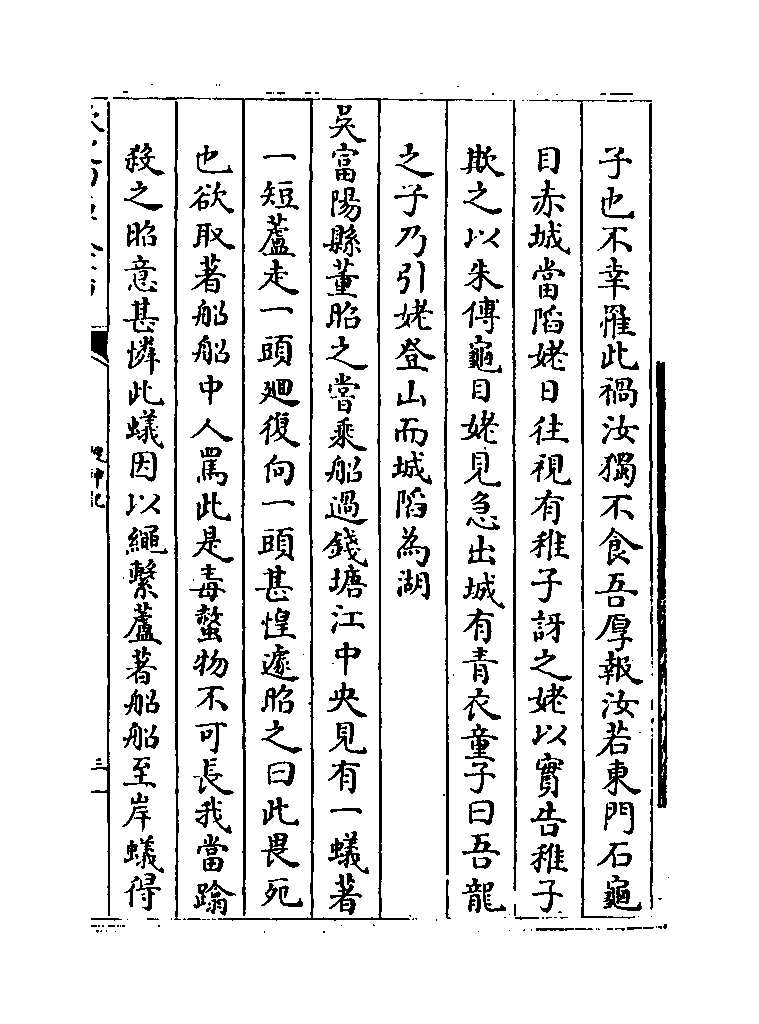 子也不幸罹此禍汝獨不食吾厚報汝若東門石龜
目赤城當陷姥日往視有稚子訝之姥以實告稚子
欺之以朱傅龜目姥見急出城有青衣童子曰吾龍
之子乃引姥登山而城陷為湖
吳富陽縣董昭之嘗乘船過錢塘江中央見有一蟻著
一短蘆走一頭廻復向一頭甚惶遽昭之曰此畏死
也欲取著船船中人罵此是毒螫物不可長我當蹹
殺之昭意甚憐此蟻因以繩繫蘆著船船至岸蟻得
搜神記